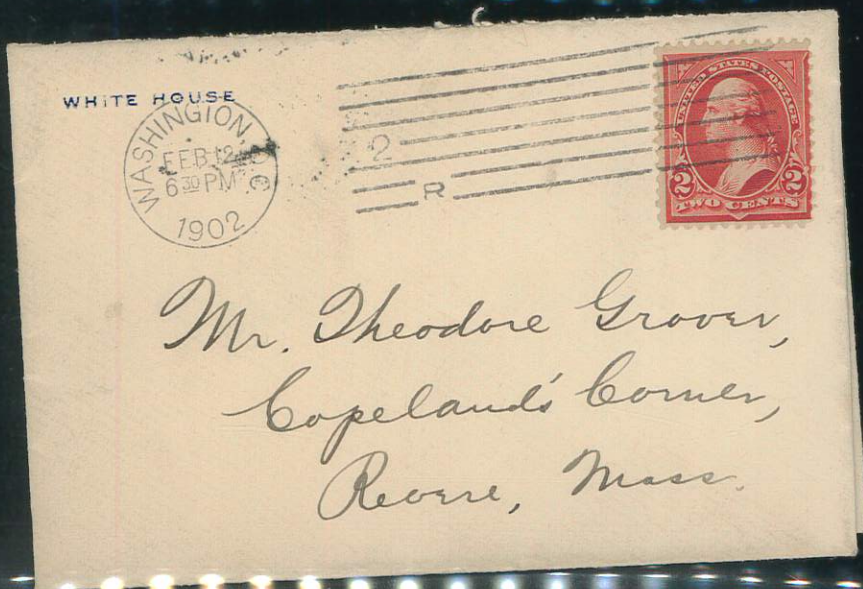 WHITE HOUSE
WASHINGTON, D.C.
FEB 12
6 30 PM
1902
2
R
UNITED STATES POSTAGE
2 2
TWO CENTS
Mr. Theodore Grover,
Copeland's Corner,
Revere, Mass.